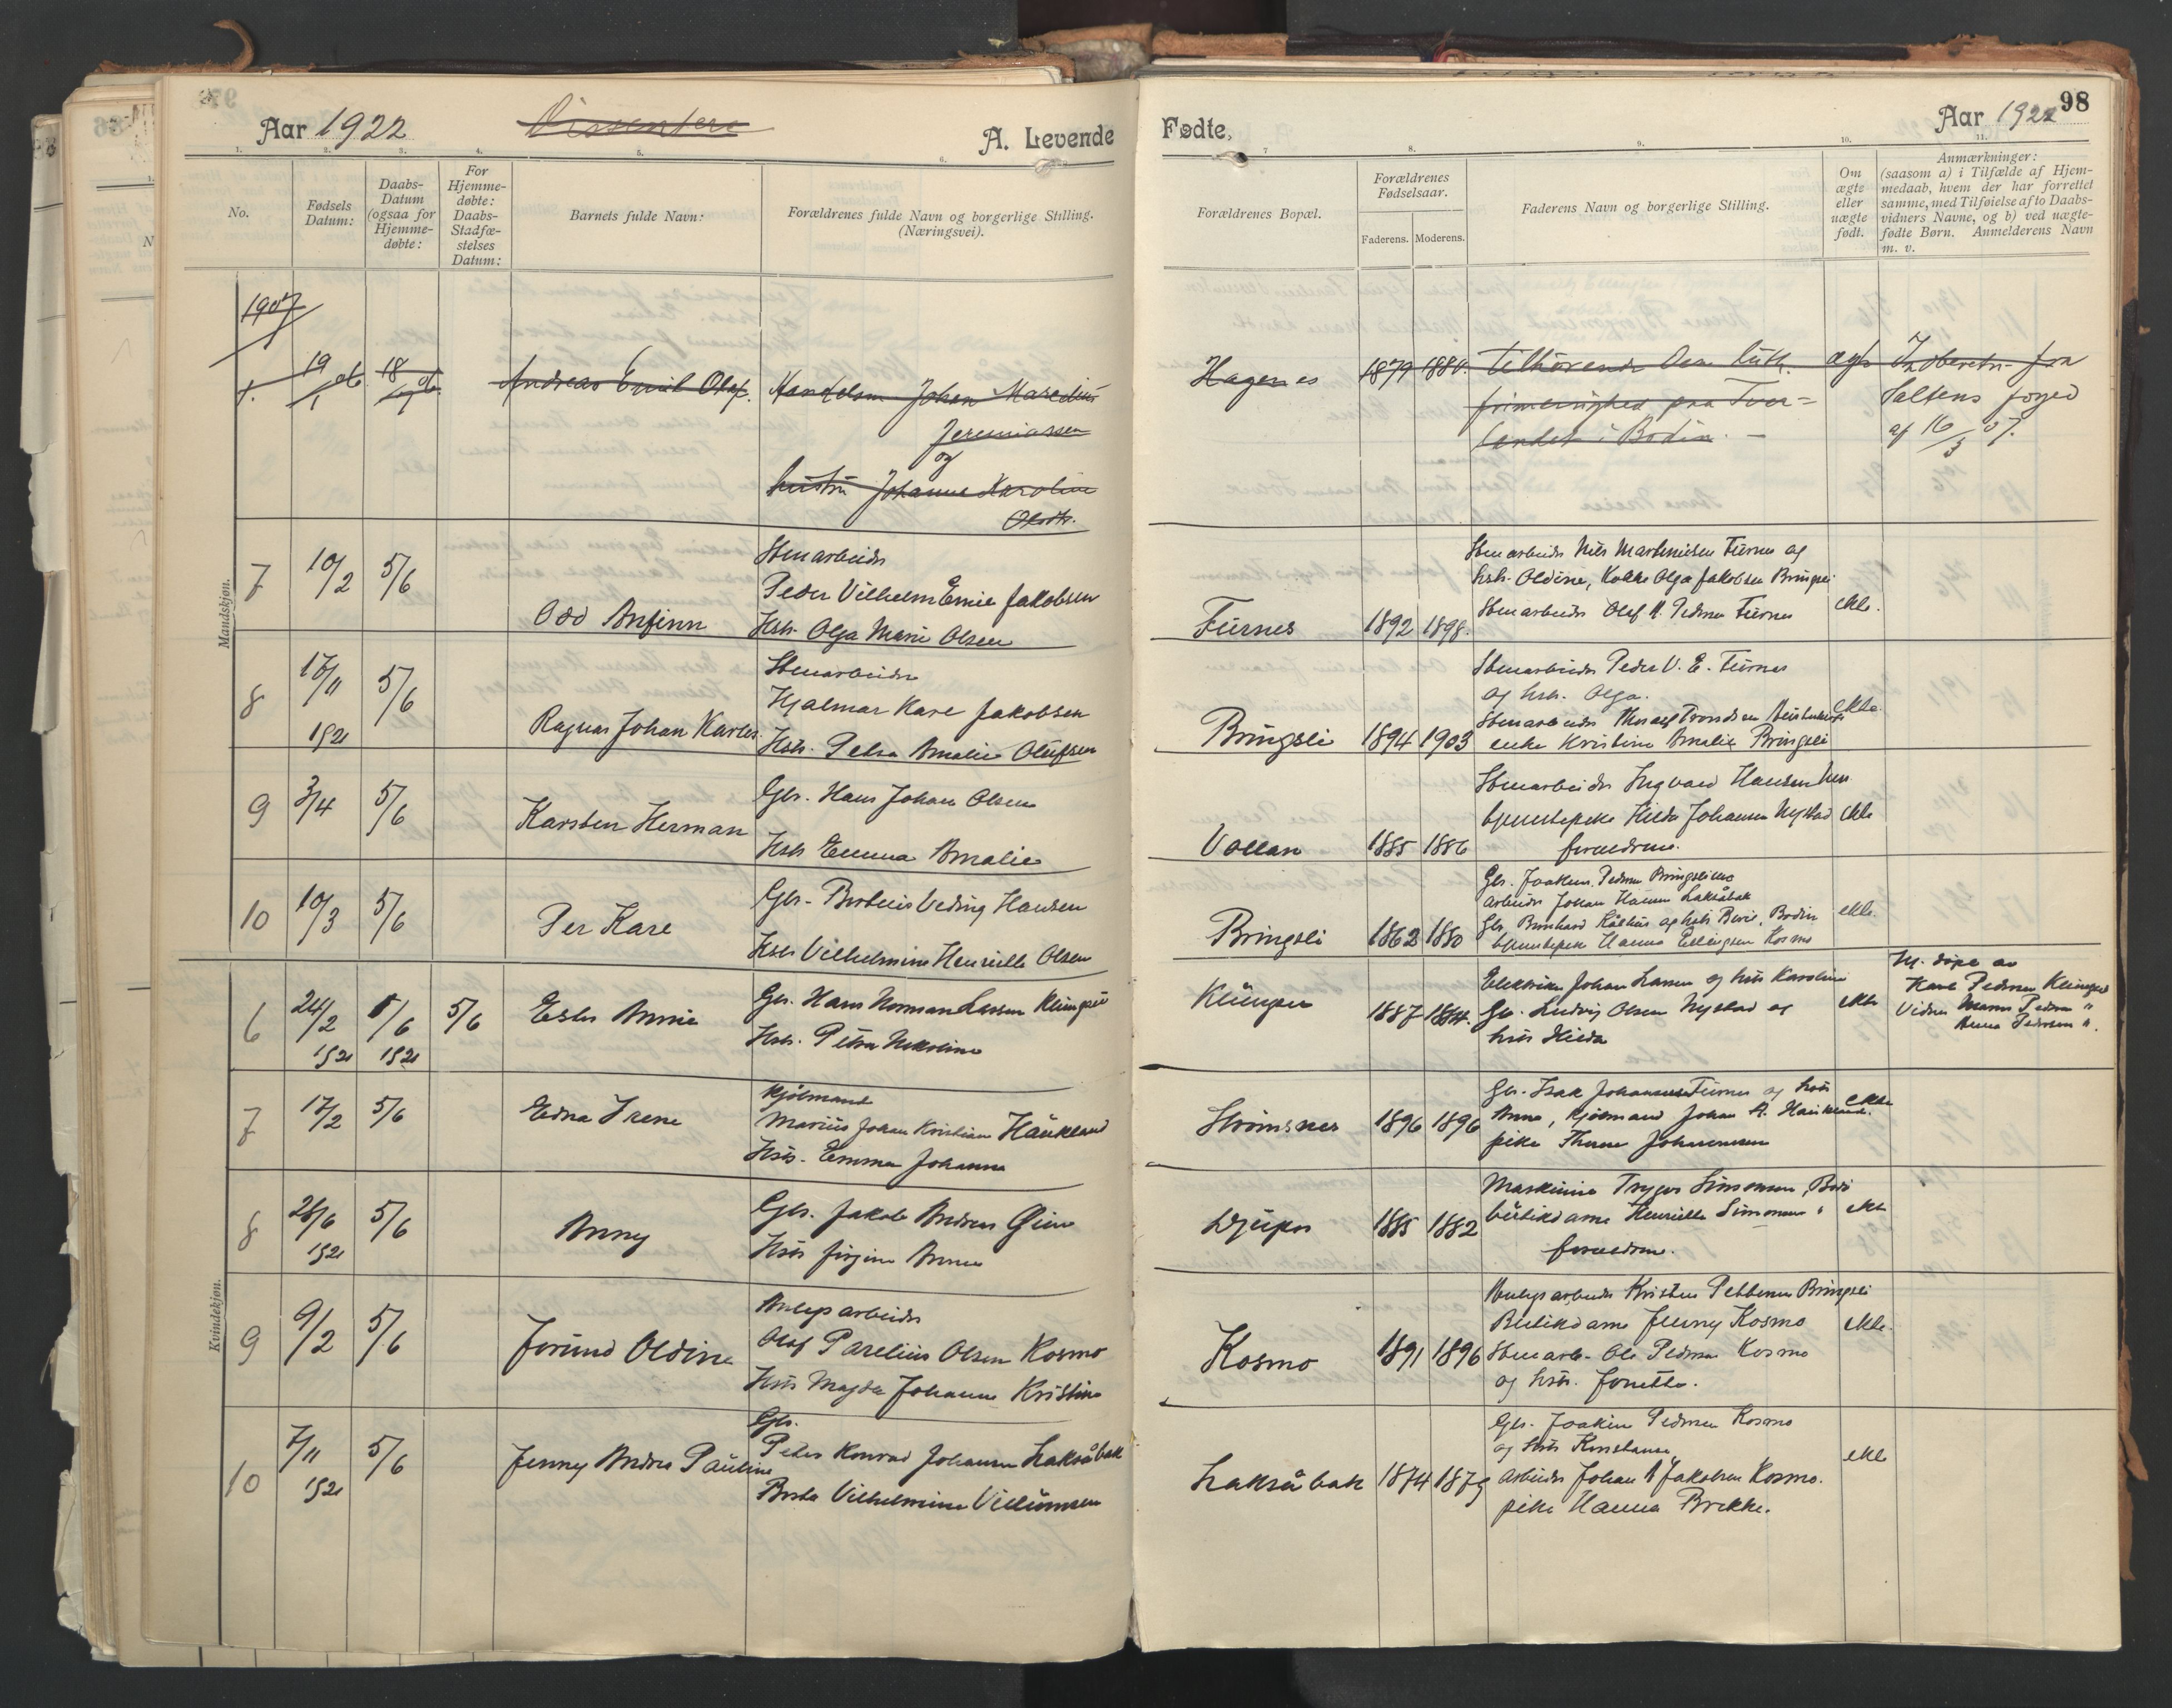 Aar 1922
Dissentere
A. Levende
1.
2.
3.
4.
5.
6.
No.
Fødsels Datum:
Daabs-Datum (ogsaa for Hjemme-døbte:
For Hjemme-døbte: Daabs-Stadfæ-stelses Datum:
Barnets fulde Navn:
Forældrenes fulde Navn og borgerlige Stilling.
(Næringsvei).
1907
1. 19/1 06 18 06 Andreas Emil Olaf. Handelsm Johan Maredius
Jeremiassen
og
hustru Johanne Karoline
Olsdtr.
Mandskjøn.
7 10/2 5/6 Odd Anfinn
Stenarbeider
Peder Vilhelm Emil Jakobsen
Hstr. Olga Marie Olsen
8 17/11 1921 5/6 Ragnar Johan Karles
Stenarbeider
Hjalmar Kare Jakobsen
Hstr. Petra Amalie Olufsen
9 3/4 5/6 Karsten Herman
Gbr. Hans Johan Olsen
Hstr Emma Amalie
10 10/3 5/6 Per Kare
Gbr. Berteus Veding Hansen
Hstr Vilhelmine Henriette Olsen
Kvindekjøn.
6 24/2 1921 5/6 1921 5/6 Ester Annie
Gbr. Hans Norman Larsen Klungset
Hstr. Petra Nikoline
7 17/2 5/6 Edna Irene
Kjølmand
Marius Johan Kristian Haukland
Hstr. Emma Johanna
8 28/6 1921 5/6 Anny
Gbr. Jakob Andreas
Hstr Jørgine Anna
9 9/2 5/6 Jorund Oldine
Anlegsarbeider
Olaf Parelius Olsen Kosmo
Hstr Magda Johanne Kristine
10 7/11 1921 5/6 Jenny Andrea Pauline
Gbr.
Peder Konrad Johansen Laksåbak
Berta Vilhelmine Villumsen
Fødte,
Aar 1922
98
7
8.
9.
10.
11.
Forældrenes Bopæl.
Forældrenes Fødselsaar.
Faderens.
Moderens.
Faderens Navn og borgerlige Stilling.
Om ægte eller uægte født.
Anmærkninger:
(saasom a) i Tilfælde af Hjem-
medaab, hvem der har forrettet
samme, med Tilføielse af to Daabs-
vidners Navne, og b) ved uægte-
fødte Børn. Anmelderens Navn
m. v.
Hagenes 1879 1880. Tilhørende Den luth. ægte Indberetn. fra
frimenighed paa Tver- Saltens foged
landet i Bodin. af 16/3 07.
Stenarbeider Nils Martinussen Furnes og
hstr. Oldine, Kokke Olga Jakobsen Bringsli
Furnes 1892 1898. Stenarbeider Olaf M. Pedersen Furnes ekte.
Stenarbeider Peder V. E. Furnes
og hstr. Olga.
Bringsli 1894 1903 Stenarbeider Trondsen ekte.
enke Kristine Amalie Bringsli
Stenarbeider Ingvard Hansen
tjenestepike Hilda Johansen Nystad ekte
Vollan 1885 1886 foreldrene.
Gbr. Joakim Pedersen Bringslimo
Arbeider Johan Hansen Laksåbak
Bringsli 1862 1880 Gbr. Bernhard og hstr Bodin ekte.
tjenestepike Hanna Ellingsen Kosmo
Klungset 1887 1884. Elektriker Johan Larsen og hstr Karoline
Gbr. Ludvig Olsen Nystad og ekte
hstr Hilda
Hj. døpt av
Karl Pedersen Klungset
Vidner Pedersen "
Anna Pedersen ".
Gbr. Isak Johannesen Furnes og hstr
Strømsnes 1896 1896 Anna, Kjølmand Johan A. Haukland. ekte
pike Johannesen
Maskinist Trygve Simonsen, Bodø
Djupos 1885 1882 butikdame Henriette Simonsen " ekte
foreldrene.
Anlegsarbeider Kristen Pettersen Bringsli
Butikdame Jenny Kosmo ekte.
Kosmo 1891 1896 Stenarb. Ole Pedersen Kosmo
og hstr. Jonetta.
Gbr. Joakim Pedersen Kosmo
og hstr Konstanse ekte
Laksåbak 1874 1879 Arbeider Johan A Jakobsen Kosmo.
pike Hanna Brekke.